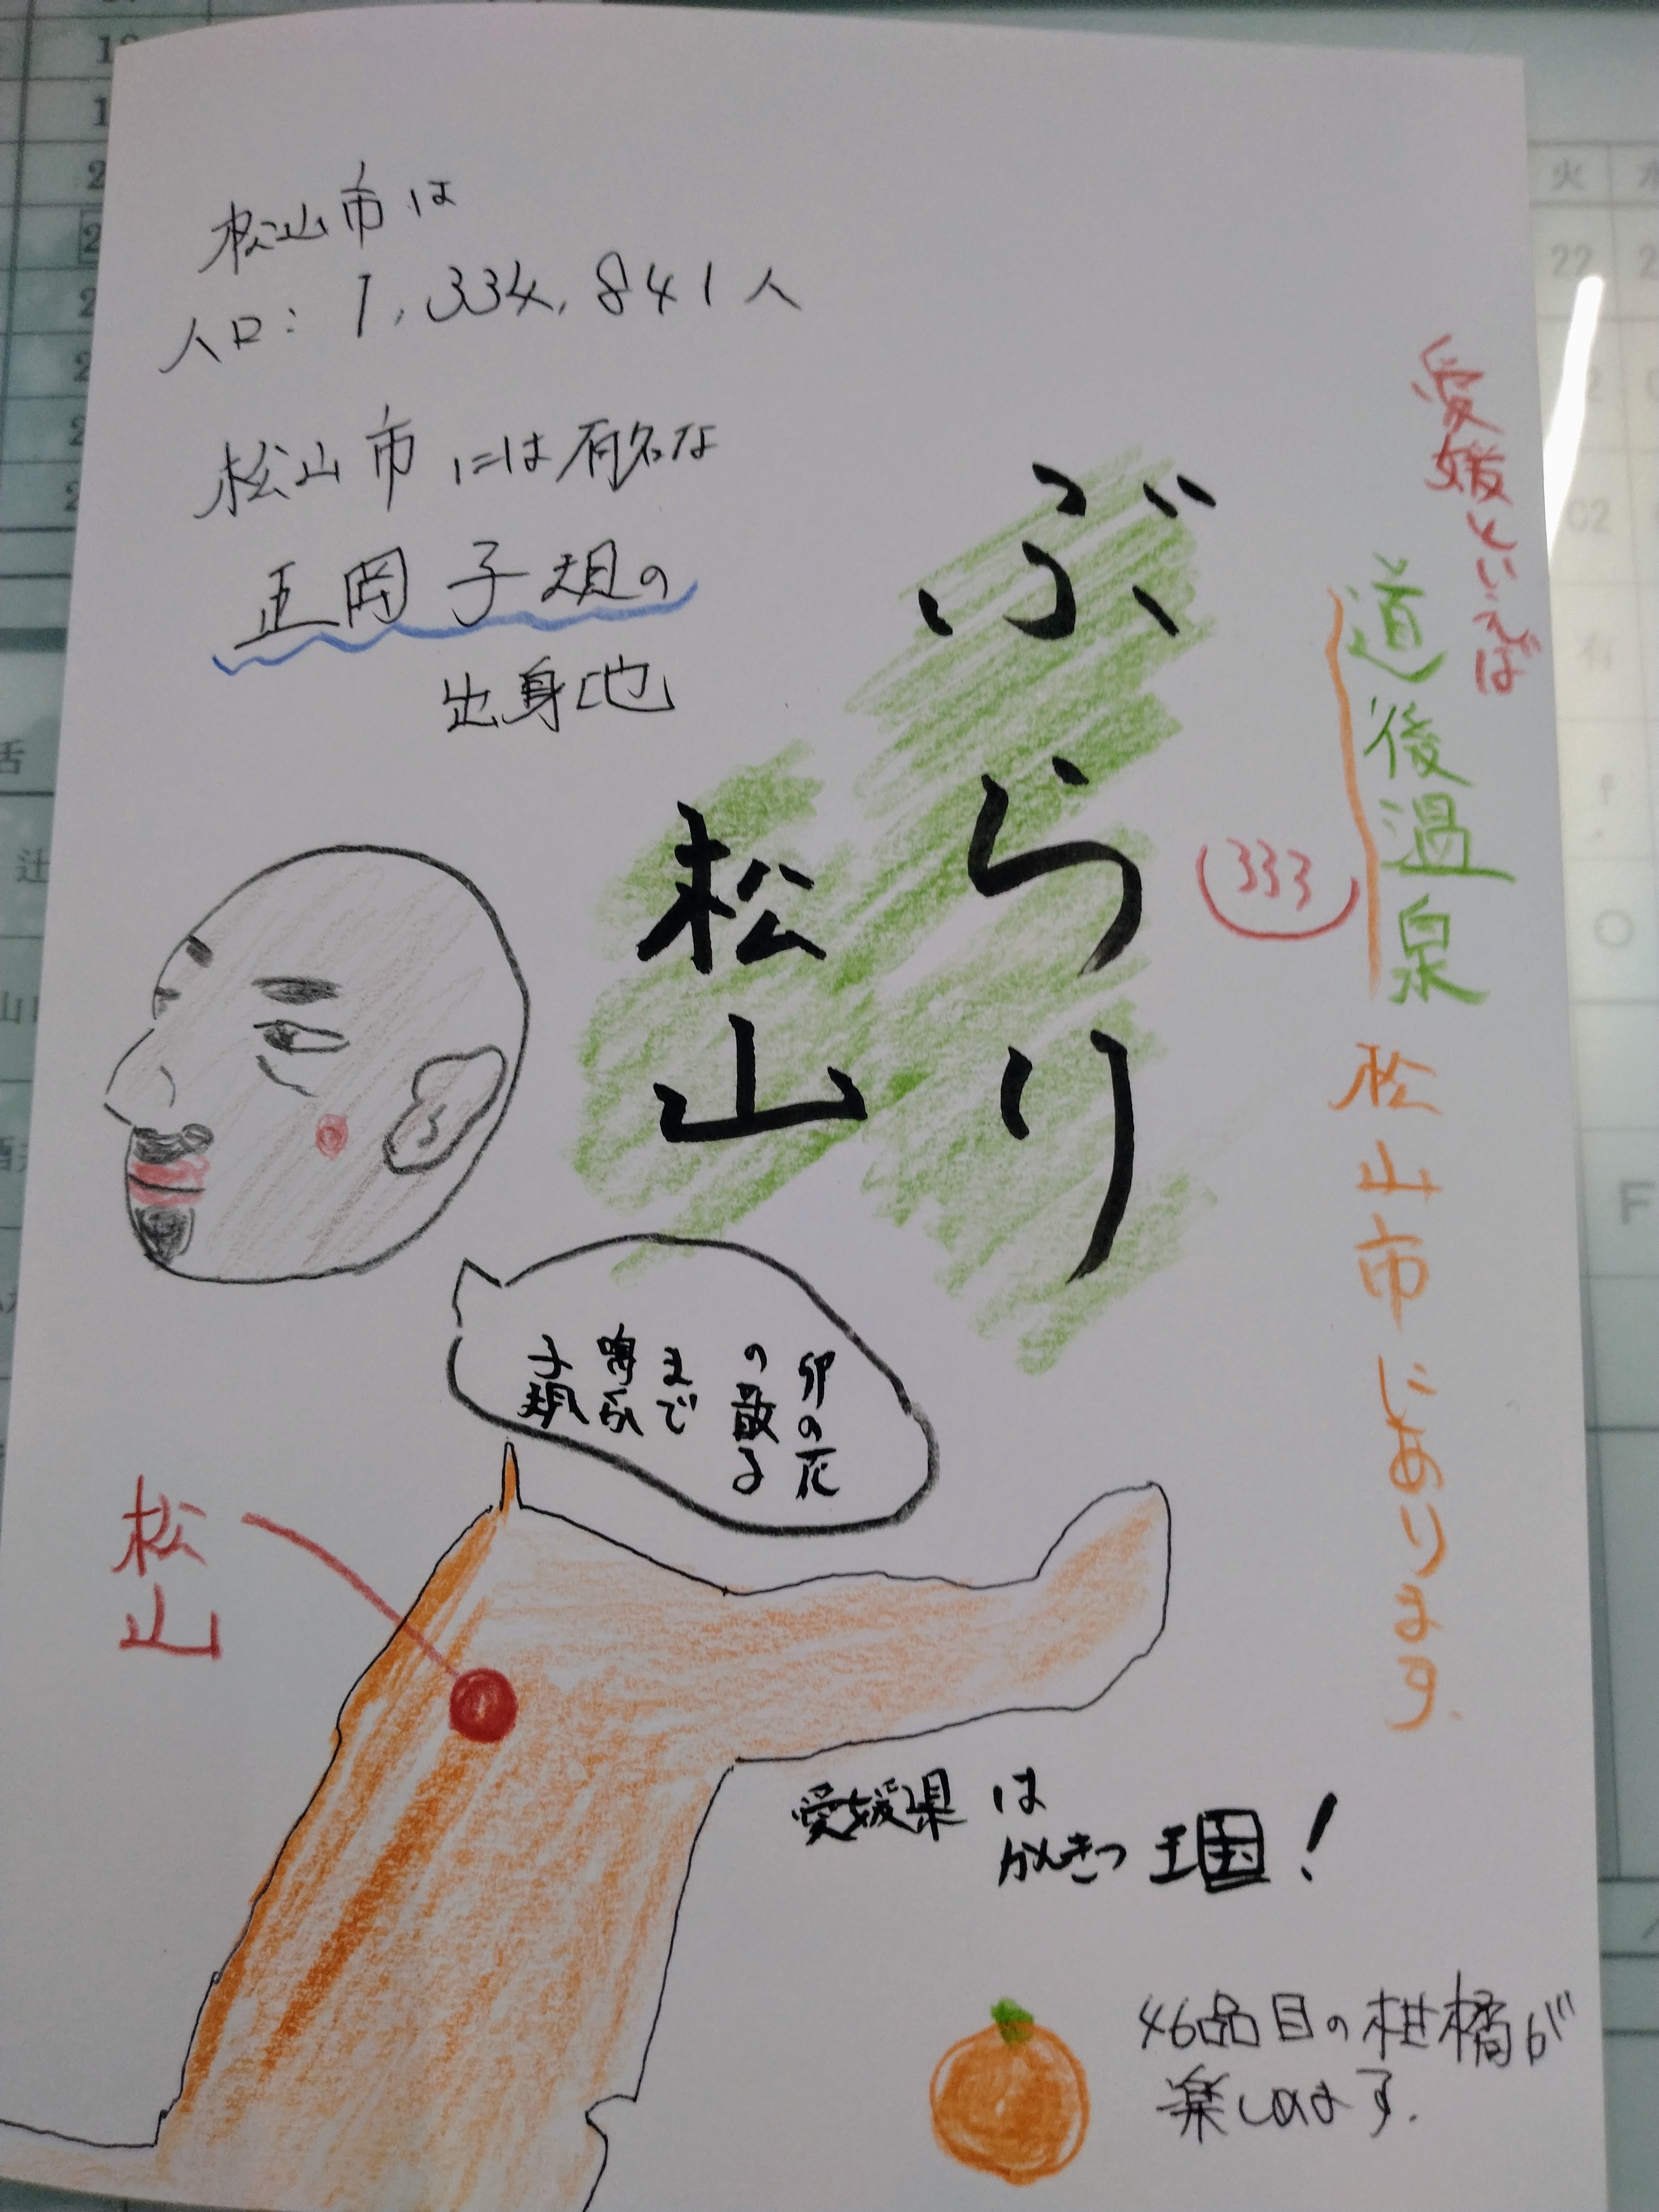 松山市は
人口：1,334,841人
松山市には有名な
正岡子規の
出身地
ぶらり
松山
愛媛といえば
道後温泉
松山市にあります。
卯の花
の散る
まで
鳴くか
子規
松山
愛媛県は
かんきつ王国！
46品目の柑橘が
楽しめます.